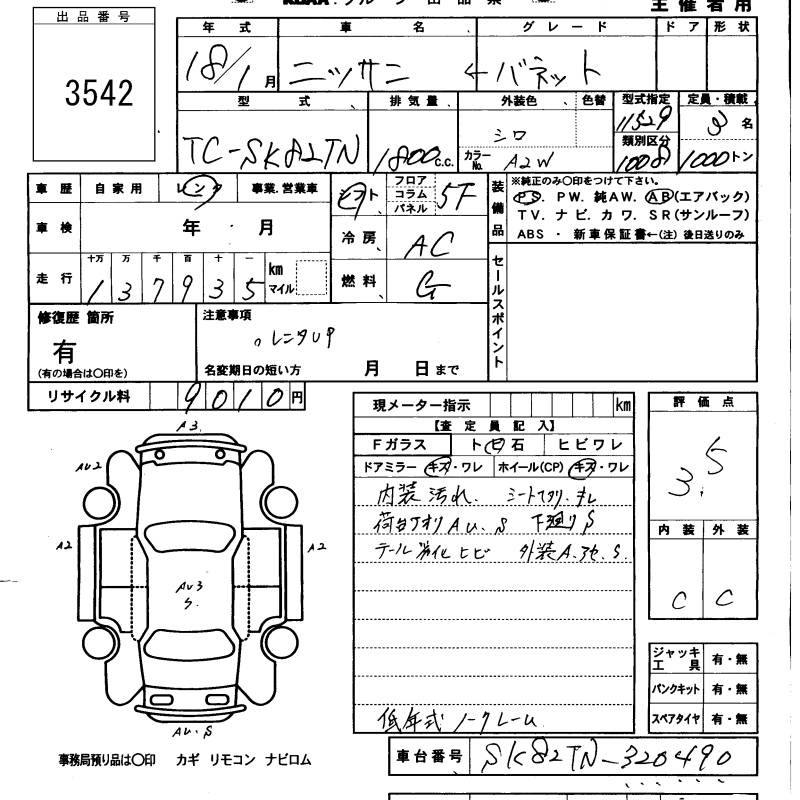 主催者用
出品番号
3542
年式 車名 グレード ドア形状
18/1月 ニッサン ← バネット
型式 排気量 外装色 色替 型式指定 定員・積載
TC-SK82TN 1800c.c. シロ 11529 3名
カラーNo. A2W 類別区分 1008 1000トン
車歴 自家用 レンタ 事業.営業車
シフト フロア コラム パネル 5F
装備品 ※純正のみ○印をつけて下さい。
PS. PW. 純AW. AB(エアバック)
TV. ナビ. カワ. SR(サンルーフ)
ABS ・ 新車保証書←(注) 後日送りのみ
車検 年・月
冷房 AC
走行 十万 万 千 百 十 一 km マイル
137935
燃料 G
セールスポイント
修復歴 箇所
有
(有の場合は○印を)
注意事項
レンタUP
名変期日の短い方 月 日まで
リサイクル料 9010円
現メーター指示 km
【査定員記入】
Fガラス トビ石 ヒビワレ
ドアミラー キズ・ワレ ホイール(CP) キズ・ワレ
内装汚れ.
荷台 AU.S 下廻りS
テール ヒビ 外装A. S.
低年式ノークレーム
評価点
3.5
内装 外装
C C
A3
AU2
A2
A2
AU3
S.
AU.S
ジャッキ工具 有・無
パンクキット 有・無
スペアタイヤ 有・無
事務局預り品は○印 カギ リモコン ナビロム
車台番号 SK82TN-320490